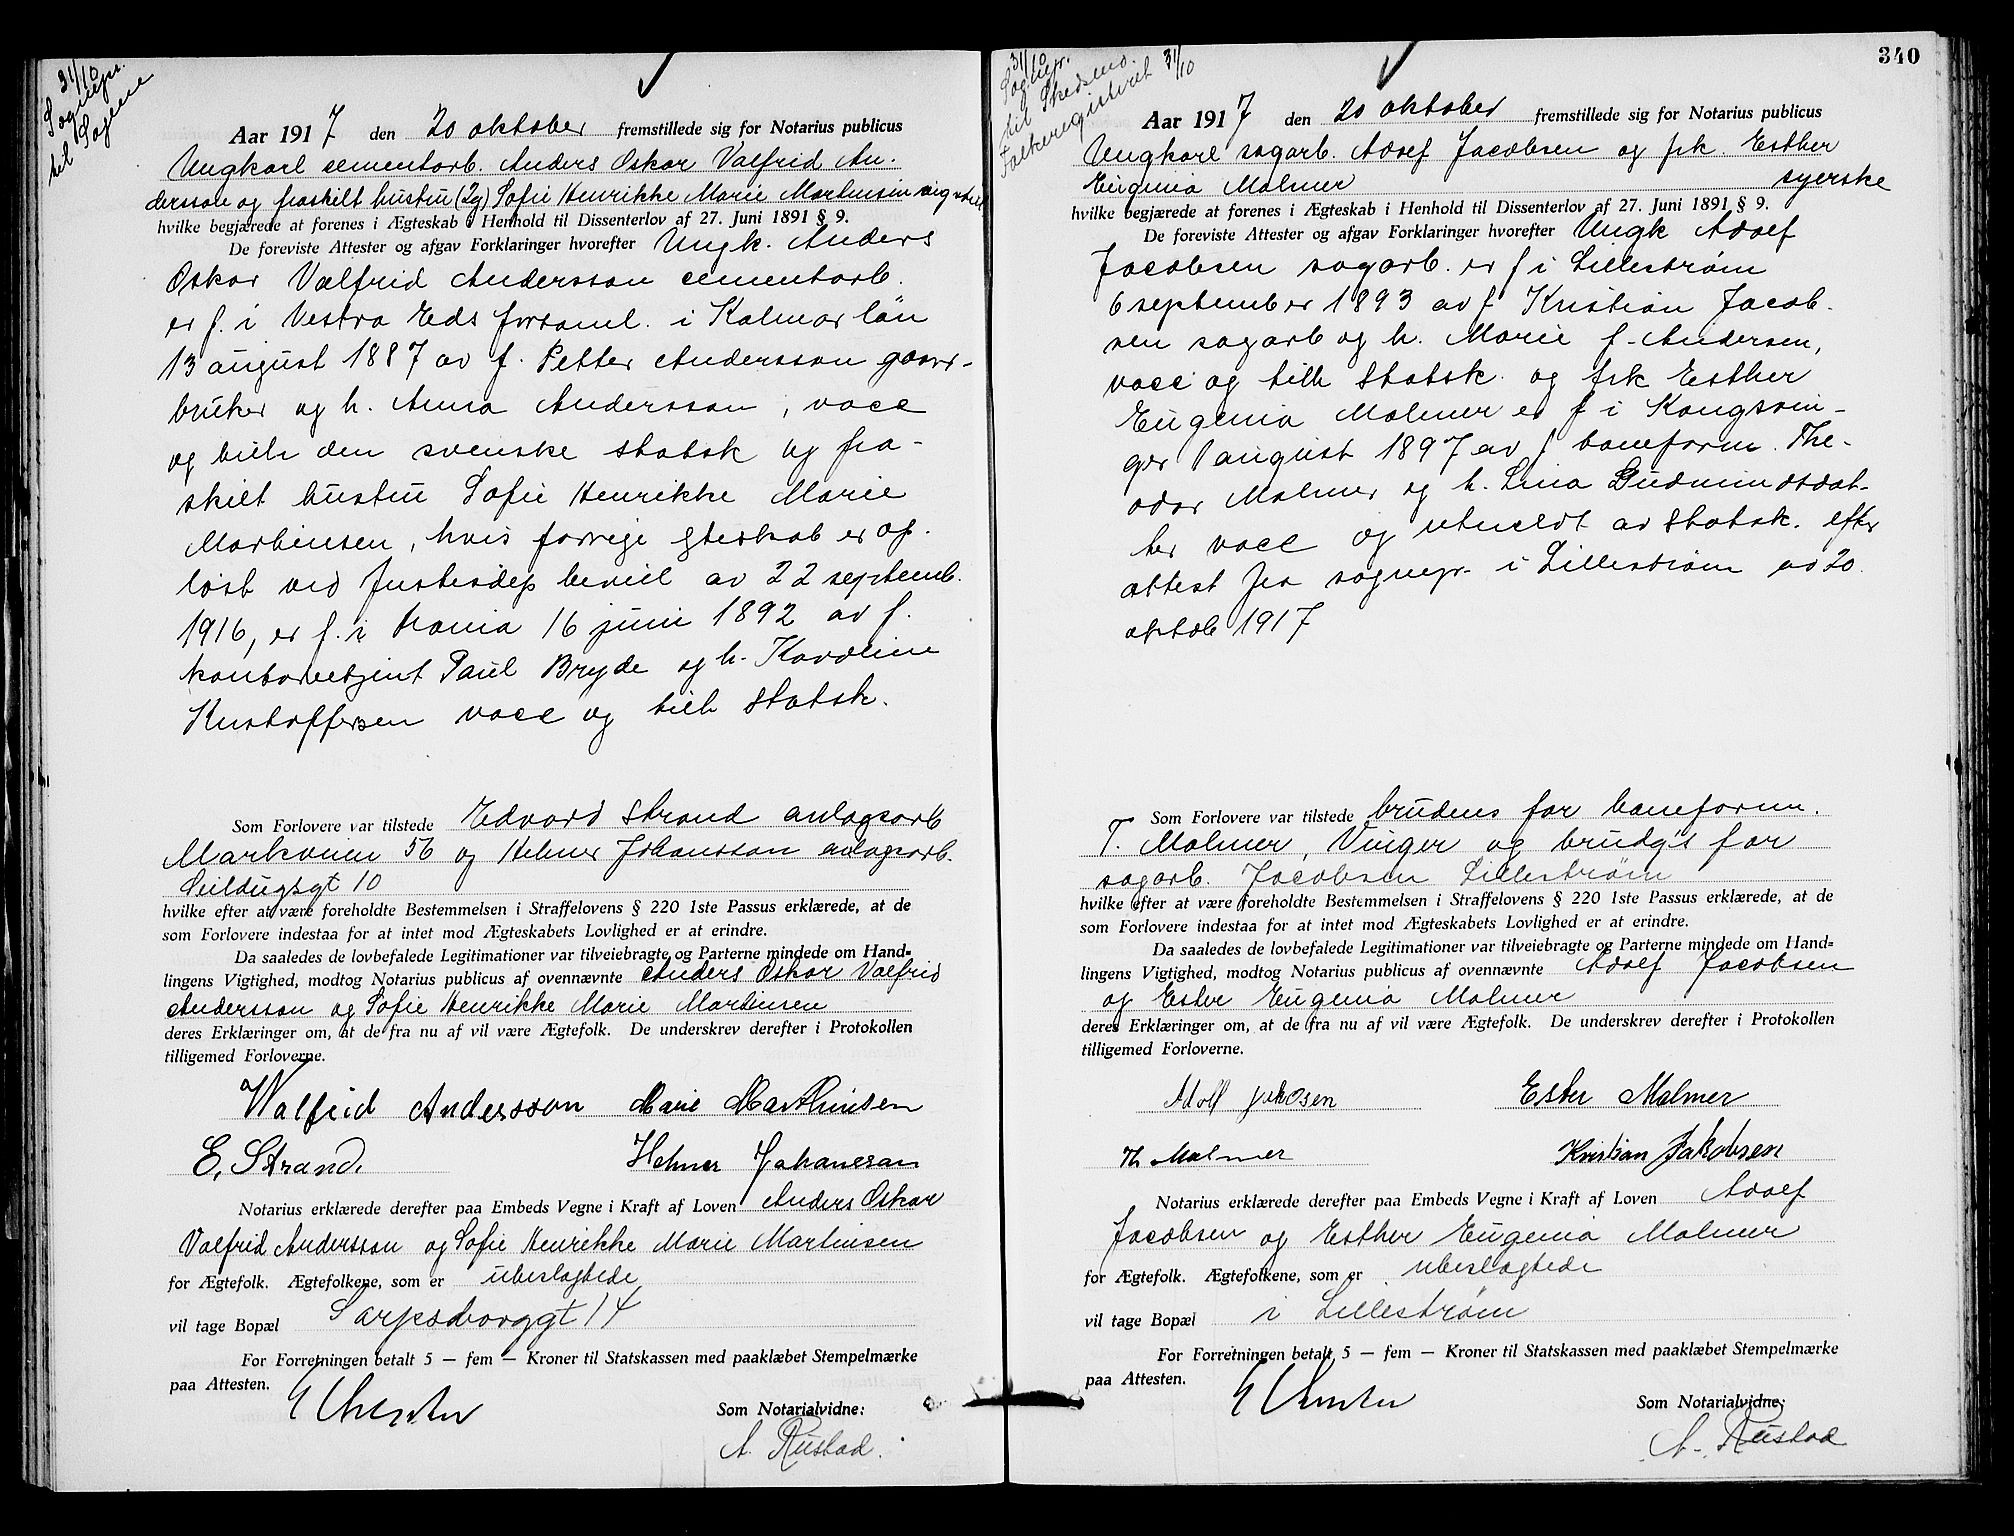 31/10
Sognepr.
til Sagene
Aar 1917 den 20 oktober fremstillede sig for Notarius publicus
Ungkarl cementarb. Anders Oskar Valfrid An-
dersson og fraskilt hustru (2g) Sofie Henrikke Marie Martinsen
hvilke begjærede at forenes i Ægteskab i Henhold til Dissenterlov af 27. Juni 1891 § 9.
De foreviste Attester og afgav Forklaringer hvorefter Ungk. Anders
Oskar Valfrid Andersson cementarb.
er f. i Vestra Eds forsaml. i Kalmar län
13 august 1887 av f. Petter Andersson gaard-
bruker og h. Anna Andersson, vacc
og tilh den svenske statsk og fra-
skilt hustru Sofie Henrikke Marie
Martinsen, hvis forrige gteskab er op-
løst ved Justisdep bevill av 22 septemb.
1916, er f. i Krania 16 juni 1892 av f.
kontorbetjent Paul Bryde og h. Karoline
Kristoffersen vacc og tilh statsk.
Som Forlovere var tilstede Edvard Strand anlægsarb
Markveien 56 og Helmer Johansson anlægsarb.
Seildugsgt 10
hvilke efter at være foreholdte Bestemmelsen i Straffelovens § 220 1ste Passus erklærede, at de
som Forlovere indestaa for at intet mod Ægteskabets Lovlighed er at erindre.
Da saaledes de lovbefalede Legitimationer var tilveiebragte og Parterne mindede om Hand-
lingens Vigtighed, modtog Notarius publicus af ovennævnte Anders Oskar Valfrid
Andersson og Sofie Henrikke Marie Martinsen
deres Erklæringer om, at de fra nu af vil være Ægtefolk. De underskrev derefter i Protokollen
tilligemed Forloverne.
Walfrid Andersson Marie Marthinsen
E. Strand. Helmer Johanesan
Notarius erklærede derefter paa Embeds Vegne i Kraft af Loven Anders Oskar
Valfrid Andersson og Sofie Henrikke Marie Martinsen
for Ægtefolk. Ægtefolkene, som er ubeslagtede
vil tage Bopæl Sarpsborggt 14
For Forretningen betalt 5 — fem — Kroner til Statskassen med paaklæbet Stempelmærke
paa Attesten.
Som Notarialvidne:
A. Rustad.
340
31/10
Sognepr.
til Skedsmo.
Folkeregistret 31/10
Aar 1917 den 20 oktober fremstillede sig for Notarius publicus
Ungkarl sagarb. Adolf Jacobsen og frk. Esther
Eugenia Malmer syerske
hvilke begjærede at forenes i Ægteskab i Henhold til Dissenterlov af 27. Juni 1891 § 9.
De foreviste Attester og afgav Forklaringer hvorefter Ungk Adolf
Jacobsen sagarb. er f i Lillestrøm
6 september 1893 av f Kristian Jacob-
sen sagarb og h. Marie f. Andersen,
vacc og tilh statsk. og frk Esther
Eugenia Malmer er f i Kongsvin-
ger 1 august 1897 av f baneform. The-
odor Malmer og h. Lina Gudmundsdat-
ter vacc og utmeldt av statsk. efter
attest fra sognepr. i Lillestrøm av 20
oktob 1917
Som Forlovere var tilstede brudens far baneform.
T. Malmer, Vinger og brudg's far
sagarb. Jacobsen Lillestrøm
hvilke efter at være foreholdte Bestemmelsen i Straffelovens § 220 1ste Passus erklærede, at de
som Forlovere indestaa for at intet mod Ægteskabets Lovlighed er at erindre.
Da saaledes de lovbefalede Legitimationer var tilveiebragte og Parterne mindede om Hand-
lingens Vigtighed, modtog Notarius publicus af ovennævnte Adolf Jacobsen
og Ester Eugenia Malmer
deres Erklæringer om, at de fra nu af vil være Ægtefolk. De underskrev derefter i Protokollen
tilligemed Forloverne.
Adolf Jakobsen Ester Malmer
Th Malmer Kristian Jakobsen
Notarius erklærede derefter paa Embeds Vegne i Kraft af Loven Adolf
Jacobsen og Esther Eugenia Malmer
for Ægtefolk. Ægtefolkene, som er ubeslagtede
vil tage Bopæl i Lillestrøm
For Forretningen betalt 5 — fem — Kroner til Statskassen med paaklæbet Stempelmærke
paa Attesten.
Som Notarialvidne:
A. Rustad